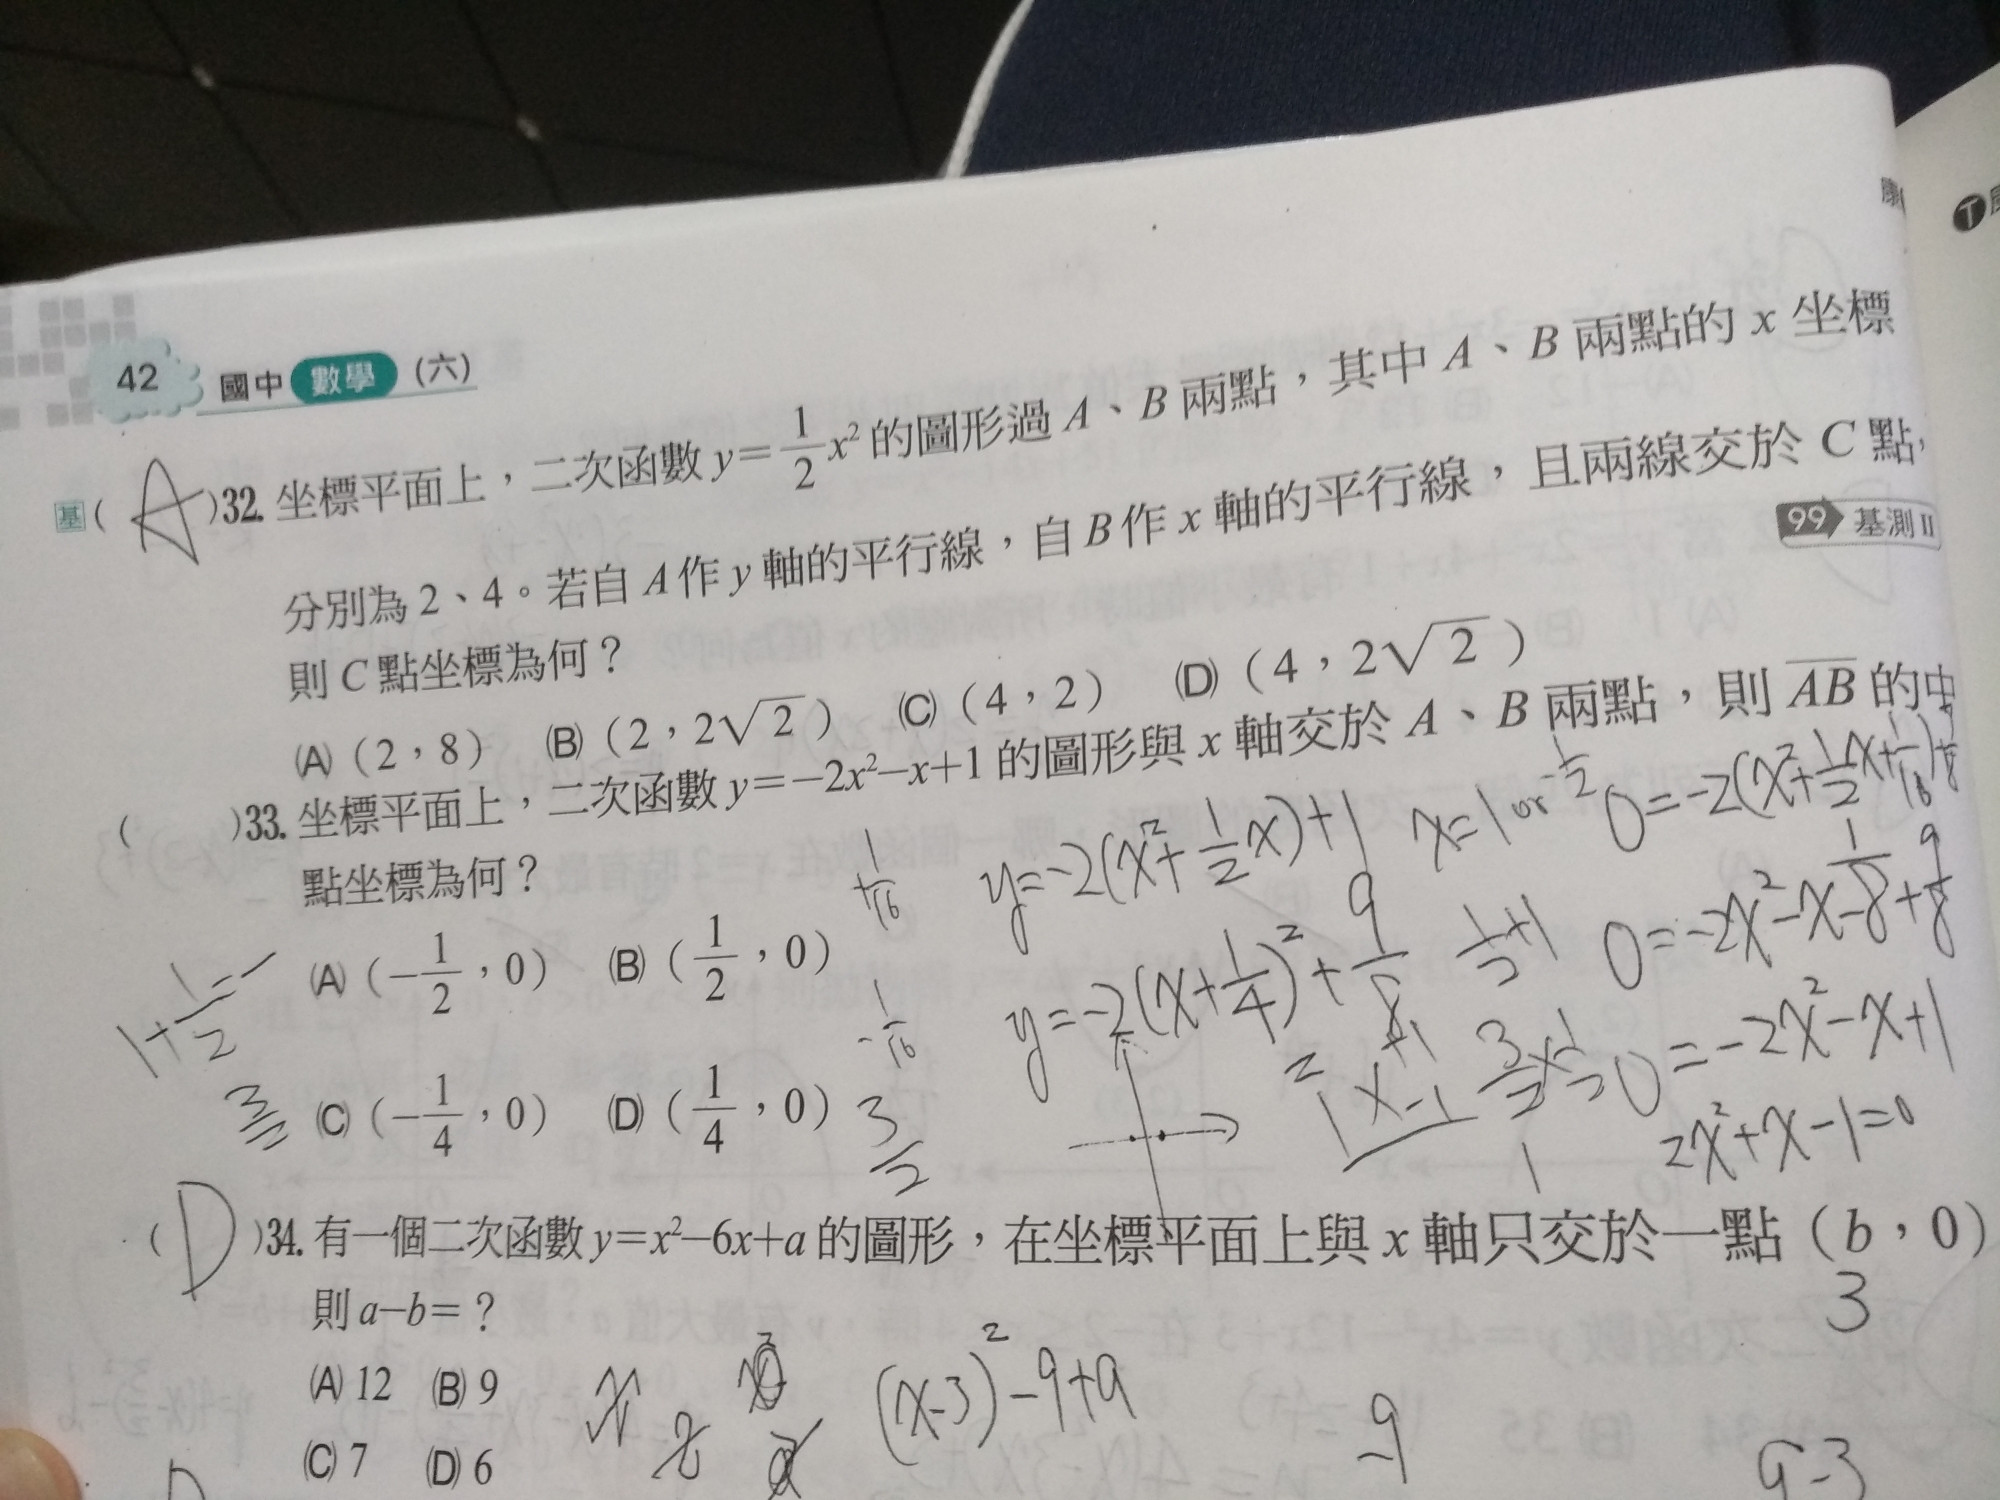 42 國中 數學 (六)
基( A )32. 坐標平面上，二次函數 y=1/2x²的圖形過 A、B 兩點，其中 A、B 兩點的 x 坐標
分別為 2、4。若自 A 作 y 軸的平行線，自 B 作 x 軸的平行線，且兩線交於 C 點，
則 C 點坐標為何？
99 基測 II
(A)（2，8） (B)（2，2√2） (C)（4，2） (D)（4，2√2）
( )33. 坐標平面上，二次函數 y=−2x²−x+1 的圖形與 x 軸交於 A、B 兩點，則 AB 的中
點坐標為何？
(A)（−1/2，0） (B)（1/2，0）
(C)（−1/4，0） (D)（1/4，0）
+1/16
-1/16
3/2
y=-2(x²+1/2x)+1
y=-2(x+1/4)²+9/8
x=1 or -1/2
0=-2x²-x-1/8+9/8
0=-2x²-x+1
2x²+x-1=0
( D )34. 有一個二次函數 y=x²−6x+a 的圖形，在坐標平面上與 x 軸只交於一點（b，0）
3
則 a−b=？
(A) 12 (B) 9
(C) 7 (D) 6
(x-3)²-9+a
-9
9-3